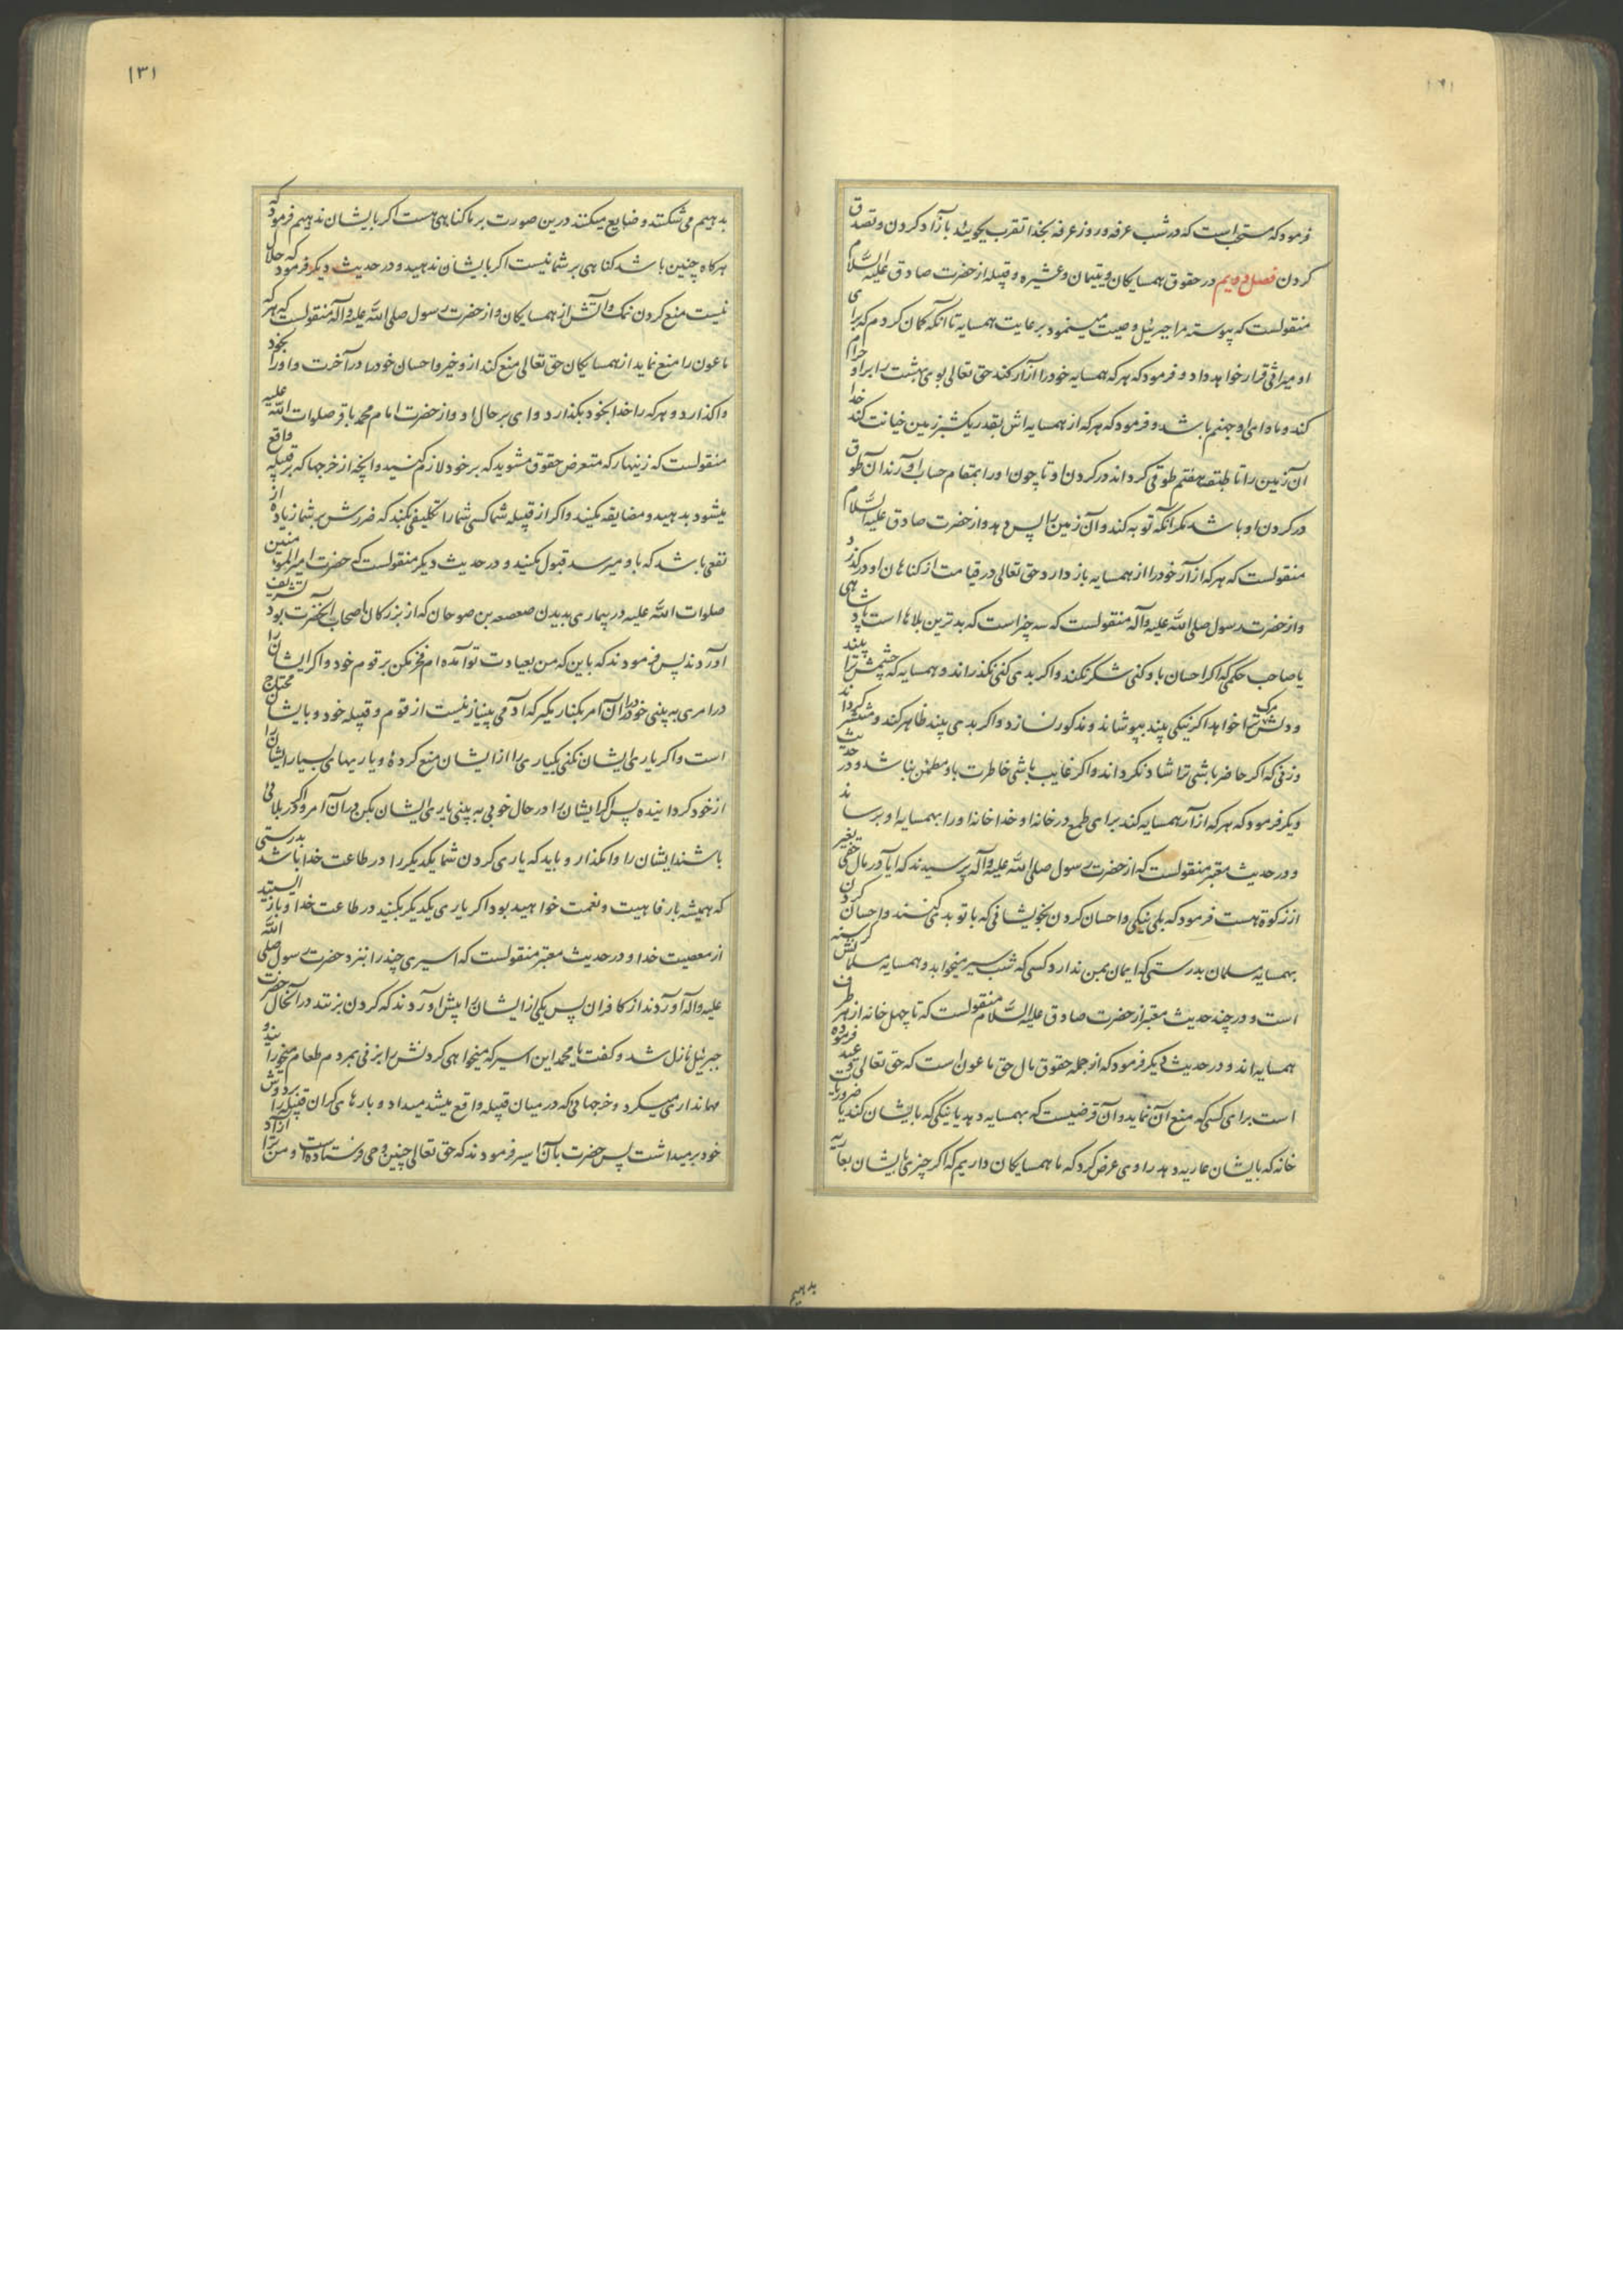 فرمود که مستحب است که در شب عرفه و روز عرفه بخدا تقرب بجویند بآزاد کردن و تصدق
کردن فصل دویم در حقوق همسایکان و یتیمان و عشیره و قبیله از حضرت صادق علیه السلام
منقولست که پیوسته مرا جبرئیل وصیت مینمود برعایت همسایه تا انکه کمان کردم که برای
او میراثی قرار خواهد داد و فرمود که هر که همسایه خود را ازار کند حق تعالی بوی بهشت را بر او حرام
کند و ماوای او جهنم باشد و فرمود که هر که از همسایه اش بقدر یکشبر زمین خیانت کند خدا
آن زمین را تا طبقه هفتم طوقی کرداند در کردن او تا چون او را بمقام حساب آورند آن طوق
در کردن او باشد مکر انکه توبه کند و آن زمین را پس دهد و از حضرت صادق علیه السلام
منقولست که هر که ازار خود را از همسایه باز دارد حق تعالی در قیامت از کناهان او در کذرد
و از حضرت رسول صلی الله علیه و آله منقولست که سه چیز است که بدترین بلاها است پادشاهی
یا صاحب حکمی که اکر احسان باو کنی شکر نکند و اکر بدی کنی نکذراند و همسایه که چشمش ترا بیند
و دلش مرک ترا خواهد اکر نیکی بیند بپوشاند و مذکور نسازد و اکر بدی بیند ظاهر کند و منتشر کرداند
و زنی که اکر حاضر باشی ترا شاد نکرداند و اکر غایب باشی خاطرت باو مطمئن نباشد و در حدیث
دیکر فرمود که هر که ازار همسایه کند برای طمع در خانه او خدا خانه او را بهمسایه او برساند
و در حدیث معتبر منقولست که از حضرت رسول صلی الله علیه و آله پرسیدند که ایا در مال حقی بغیر
از زکوة هست فرمود که بلی نیکی و احسان کردن بخویشانی که با تو بد میکنند و احسان کردن
بهمسایه مسلمان بدرستی که ایمان بمن ندارد کسی که شب سیر میخوابد و همسایه مسلمانش کرسنه
است و در چند حدیث معتبر از حضرت صادق علیه السلام منقولست که تا چهل خانه از هر طرف
همسایه اند و در حدیث دیکر فرمود که از جمله حقوق مال حق ماعون است که حق تعالی وعید فرموده
است برای کسی که منع آن نماید و آن قرضیست که بهمسایه دهد یا نیکی که بایشان کند یا ضروریات
خانه که بایشان عاریه دهد راوی عرض کرد که ما همسایکان داریم که اکر چیزی بایشان بعاریه
بدهیم
۱۳۱
بدهیم می شکنند و ضایع میکنند درین صورت بر ما کناهی هست اکر بایشان ندهیم فرمود که
هرکاه چنین باشد کناهی بر شما نیست اکر بایشان ندهید و در حدیث دیکر فرمود که حلال
نیست منع کردن نمک و آتش از همسایکان و از حضرت رسول صلی الله علیه و آله منقولست که هر که
ماعون را منع نماید از همسایکان حق تعالی منع کند ازو خیر و احسان خود را در آخرت و او را بخود
واکذارد و هر که را خدا بخود بکذارد وای بر حال او و از حضرت امام محمد باقر صلوات الله علیه
منقولست که زینهار که متعرض حقوق مشوید که بر خود لازم کنید و انچه از خرجها که بر قبیله واقع
میشود بدهید و مضایقه مکنید و اکر از قبیله شما کسی شما را تکلیفی بکند که ضررش بر شما زیاده از
نفعی باشد که باو میرسد قبول مکنید و در حدیث دیکر منقولست که حضرت امیر المومنین
صلوات الله علیه در بیماری بدیدن صعصعه بن صوحان که از بزرکان اصحاب آنحضرت بود تشریف
آوردند پس فرمودند که باین که من بعیادت تو آمده ام فخر مکن بر قوم خود و اکر ایشان را
در امری به بینی خود را از آن امر بکنار مکیر که آدمی بینیاز نیست از قوم و قبیله خود و بایشان محتاج
است و اکر یاری ایشان نکنی یکیاری را از ایشان منع کردهٔ و یاریهای بسیار ایشان را
از خود کردانیده پس اکر ایشان را در حال خوبی به بینی یاری ایشان بکن در آن امر و اکر در بلائی
باشند ایشان را وامکذار و باید که یاری کردن شما یکدیکر را در طاعت خدا باشد بدرستی
که همیشه بارفاهیت و نعمت خواهید بود اکر یاری یکدیکر بکنید در طاعت خدا و باز ایستید
از معصیت خدا و در حدیث معتبر منقولست که اسیری چند را بنزد حضرت رسول صلی الله
علیه و اله آوردند از کافران پس یکی از ایشان را پیش آوردند که کردن بزنند در آنحال حضرت
جبرئیل نازل شد و کفت یا محمد این اسیر که میخواهی کردنش را بزنی بمردم طعام میخورانید و
مهانداری میکرد و خرجهائی که در میان قبیله واقع میشد میداد و بارهای کران قبیله را بر دوش
خود بر میداشت پس حضرت بآن اسیر فرمودند که حق تعالی چنین وحی فرستاده است و من ترا ازاد